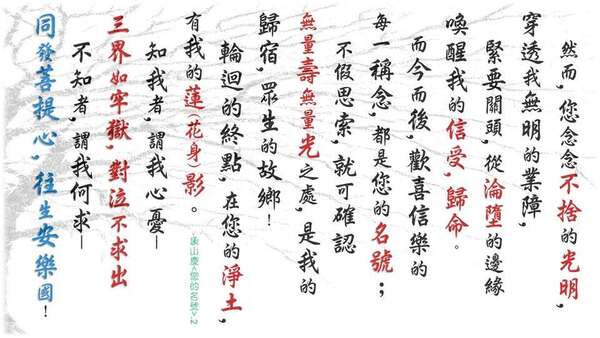 然而，您念念不捨的光明，
穿透我無明的業障，
緊要關頭，從淪墮的邊緣
喚醒我的信受，歸命。
而今而後，歡喜信樂的
每一稱念，都是您的名號；
不假思索，就可確認
無量壽無量光之處，是我的
歸宿，眾生的故鄉！
輪迴的終點，在您的淨土，
有我的蓮（花身）影。
-象山慶<您的名號>-2
知我者，謂我心憂—
三界如牢獄，對泣不求出
不知者，謂我何求—
同發菩提心，往生安樂國！